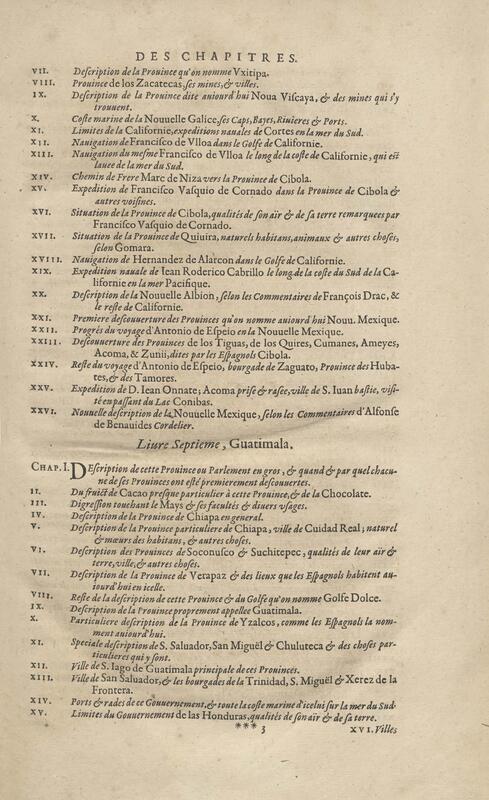 DES CHAPITRES.
VII. Description de la Prouince qu'on nomme Vxitipa.
VIII. Prouince de los Zacatecas, ses mines, & villes.
IX. Description de la Prouince dite aujourd'hui Noua Viscaya, & des mines qui s'y
trouuent.
X. Coste marine de la Nouuelle Galice, ses Caps, Bayes, Riuieres & Ports.
XI. Limites de la Californie, expeditions nauales de Cortes en la mer du Sud.
XII. Nauigation de Francisco de Vlloa dans le Golfe de Californie.
XIII. Nauigation du mesme Francisco de Vlloa le long de la coste de Californie, qui est
lauee de la mer du Sud.
XIV. Chemin de Frere Marc de Niza vers la Prouince de Cibola.
XV. Expedition de Francisco Vasquio de Cornado dans la Prouince de Cibola &
autres voisines.
XVI. Situation de la Prouince de Cibola, qualités de son air & de sa terre remarquees par
Francisco Vasquio de Cornado.
XVII. Situation de la Prouince de Quiuira, naturels habitans, animaux & autres choses,
selon Gomara.
XVIII. Nauigation de Hernandez de Alarcon dans le Golfe de Californie.
XIX. Expedition nauale de Iean Roderico Cabrillo le long de la coste du Sud de la Ca-
lifornie en la mer Pacifique.
XX. Description de la Nouuelle Albion, selon les Commentaires de François Drac, &
le reste de Californie.
XXI. Premiere descouuerture des Prouinces qu'on nomme aujourd'hui Nouu. Mexique.
XXII. Progrés du voyage d'Antonio de Espeio en la Nouuelle Mexique.
XXIII. Descouuerture des Prouinces de los Tiguas, de los Quires, Cumanes, Ameyes,
Acoma, & Zunii, dites par les Espagnols Cibola.
XXIV. Reste du voyage d'Antonio de Espeio, bourgade de Zaguato, Prouince des Huba-
tes, & des Tamores.
XXV. Expedition de D. Iean Onnate; Acoma prise & rasée, ville de S. Iuan bastie, visi-
té en passant du Lac Conibas.
XXVI. Nouuelle description de la Nouuelle Mexique, selon les Commentaires d'Alfonse
de Benauides Cordelier.
Liure Septieme, Guatimala.
CHAP. I. DEscription de cette Prouince ou Parlement en gros, & quand & par quel chacu-
ne de ses Prouinces ont esté premierement descouuertes.
II. Du fruict de Cacao presque particulier à cette Prouince, & de la Chocolate.
III. Digression touchant le Mays & ses facultés & diuers usages.
IV. Description de la Prouince de Chiapa en general.
V. Description de la Prouince particuliere de Chiapa, ville de Cuidad Real; naturel
& mœurs des habitans, & autres choses.
VI. Description des Prouinces de Soconusco & Suchitepec, qualités de leur air &
terre, ville, & autres choses.
VII. Description de la Prouince de Verapaz & des lieux que les Espagnols habitent au-
iourd'hui en icelle.
VIII. Reste de la description de cette Prouince & du Golfe qu'on nomme Golfe Dolce.
IX. Description de la Prouince proprement appellee Guatimala.
X. Particuliere description de la Prouince de Yzalcos, comme les Espagnols la nom-
ment auiourd'hui.
XI. Speciale description de S. Saluador, San Miguël & Chuluteca & des choses par-
ticulieres qui y sont.
XII. Ville de S. Iago de Guatimala principale de ces Prouinces.
XIII. Ville de San Saluador, & les bourgades de la Trinidad, S. Miguël & Xerez de la
Frontera.
XIV. Ports & rades de ce Gouuernement, & toute la coste marine d'icelui sur la mer du Sud.
XV. Limites du Gouuernement de las Honduras, qualités de son air & de sa terre.
*** 3 XVI. Villes